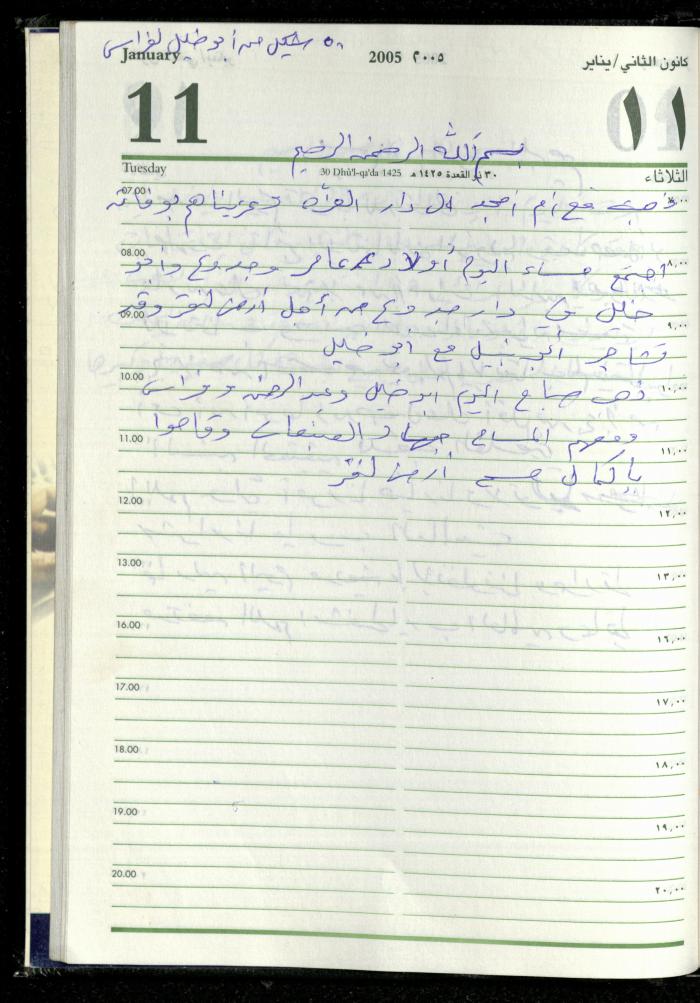 ٥٠ شيكل من أبو خليل لفراس
January 2005 ٢٠٠٥ كانون الثاني/يناير
11 ١١
بسم الله الرحمن الرحيم
Tuesday 30 Dhû'l-qa'da 1425 ٣٠ ذو القعدة ١٤٢٥ هـ الثلاثاء
07.00
ذهبت مع أم أمجد الى دار وعزيناهم بوفاته
08.00 ٨,٠٠
اجتمع مساء اليوم أولاد عامر وجدوع وأبو
خليل في دار جدوع من أجل أرض لنقر وقد
09.00 ٩,٠٠
تشاجر أبو نبيل مع أبو خليل
10.00 ١٠,٠٠
ذهب صباح اليوم أبو خليل وعبد الرحمن وفراس
ومعهم المساح جهاد وقاموا
11.00 ١١,٠٠
بإكمال مسح أرض لنقر
12.00 ١٢,٠٠
13.00 ١٣,٠٠
16.00 ١٦,٠٠
17.00 ١٧,٠٠
18.00 ١٨,٠٠
19.00 ١٩,٠٠
20.00 ٢٠,٠٠